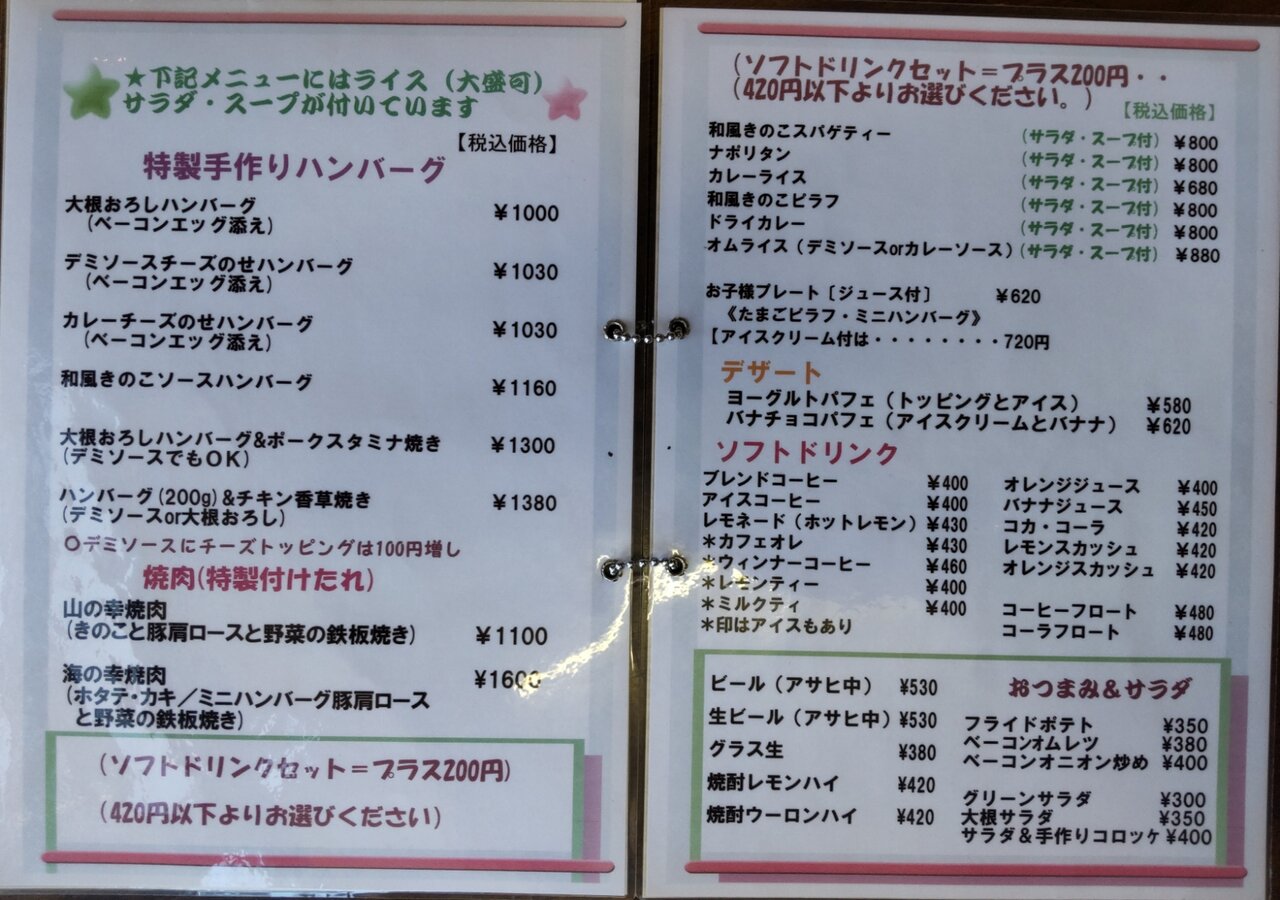 ★下記メニューにはライス（大盛可）
サラダ・スープが付いています
【税込価格】
特製手作りハンバーグ
大根おろしハンバーグ ¥1000
（ベーコンエッグ添え）
デミソースチーズのせハンバーグ ¥1030
（ベーコンエッグ添え）
カレーチーズのせハンバーグ ¥1030
（ベーコンエッグ添え）
和風きのこソースハンバーグ ¥1160
大根おろしハンバーグ&ポークスタミナ焼き ¥1300
（デミソースでもOK）
ハンバーグ(200g)&チキン香草焼き ¥1380
（デミソースor大根おろし）
○デミソースにチーズトッピングは100円増し
焼肉(特製付けたれ)
山の幸焼肉
（きのこと豚肩ロースと野菜の鉄板焼き） ¥1100
海の幸焼肉 ¥1600
（ホタテ・カキ／ミニハンバーグ豚肩ロース
と野菜の鉄板焼き）
（ソフトドリンクセット＝プラス200円）
（420円以下よりお選びください）
（ソフトドリンクセット＝プラス200円・・
（420円以下よりお選びください。）
【税込価格】
和風きのこスパゲティー （サラダ・スープ付） ¥800
ナポリタン （サラダ・スープ付） ¥800
カレーライス （サラダ・スープ付） ¥680
和風きのこピラフ （サラダ・スープ付） ¥800
ドライカレー （サラダ・スープ付） ¥800
オムライス（デミソースorカレーソース）（サラダ・スープ付） ¥880
お子様プレート〔ジュース付〕 ¥620
《たまごピラフ・ミニハンバーグ》
【アイスクリーム付は・・・・・・・・720円
デザート
ヨーグルトパフェ（トッピングとアイス） ¥580
バナチョコパフェ（アイスクリームとバナナ） ¥620
ソフトドリンク
ブレンドコーヒー ¥400
アイスコーヒー ¥400
レモネード（ホットレモン） ¥430
＊カフェオレ ¥430
＊ウィンナーコーヒー ¥460
＊レモンティー ¥400
＊ミルクティ ¥400
＊印はアイスもあり
オレンジジュース ¥400
バナナジュース ¥450
コカ・コーラ ¥420
レモンスカッシュ ¥420
オレンジスカッシュ ¥420
コーヒーフロート ¥480
コーラフロート ¥480
ビール（アサヒ中） ¥530
生ビール（アサヒ中） ¥530
グラス生 ¥380
焼酎レモンハイ ¥420
焼酎ウーロンハイ ¥420
おつまみ＆サラダ
フライドポテト ¥350
ベーコンオムレツ ¥380
ベーコンオニオン炒め ¥400
グリーンサラダ ¥300
大根サラダ ¥350
サラダ＆手作りコロッケ ¥400